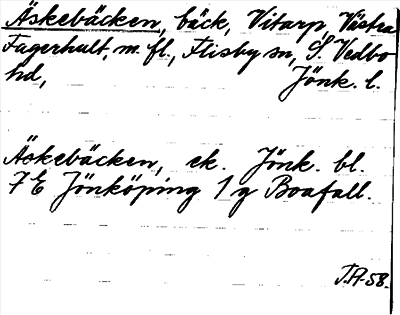 Äskebäcken, bäck, Vitarp, Västra
Fagerhult, m. fl., Flisby sn, S. Vedbo
hd, Jönk. l.
Äskebäcken, ek. Jönk. bl.
7E Jönköping 1 g Boafall.
J.A-58.